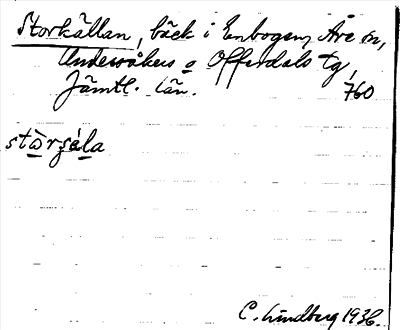 Storkällan, bäck i Enbogen, Åre sn,
Undersåkers o Offerdals tg,
Jämtl. län. 760
stòrʂála
C. Lindberg 1936.